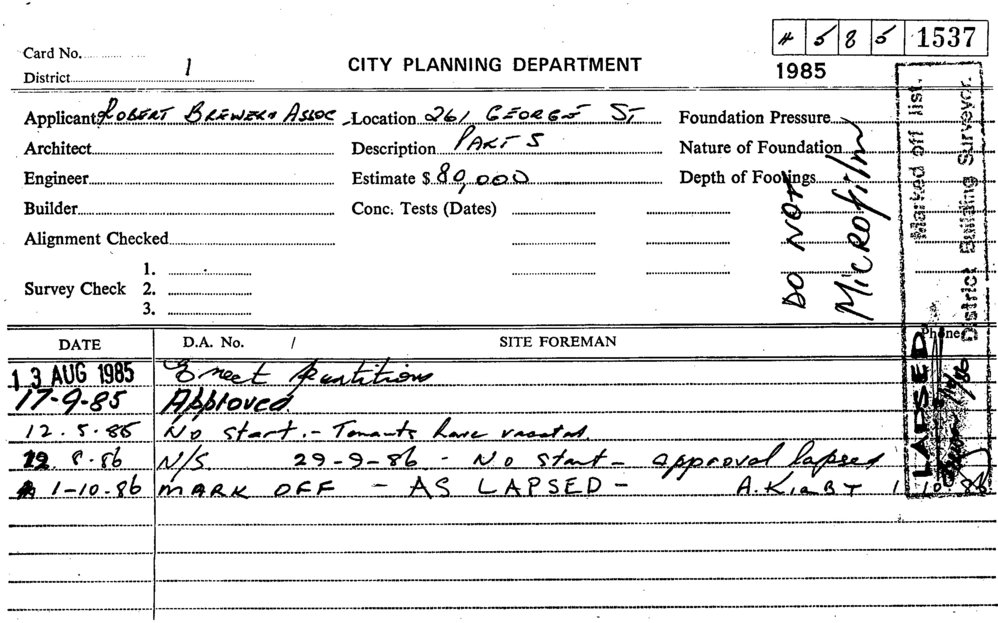 4 5 8 5 1537
Card No.
District 1
CITY PLANNING DEPARTMENT
1985
Applicant ROBERT BREWER & ASSOC Location 261 GEORGE ST Foundation Pressure
Architect Description PART 5 Nature of Foundation
Engineer Estimate $ 80,000 Depth of Footings
Builder Conc. Tests (Dates)
Alignment Checked
Survey Check 1.
2.
3.
DO NOT
MICROfilm
Marked off list.
District Building Surveyor.
LAPSED
DATE D.A. No. / SITE FOREMAN Phone
13 AUG 1985 Erect partitions
17-9-85 Approved.
12.5.86 No start. - Tenants have vacated.
12 8.86 N/S 29-9-86 - No start - approval lapsed
1-10-86 MARK OFF - AS LAPSED - A. KIRBY 1 10 86